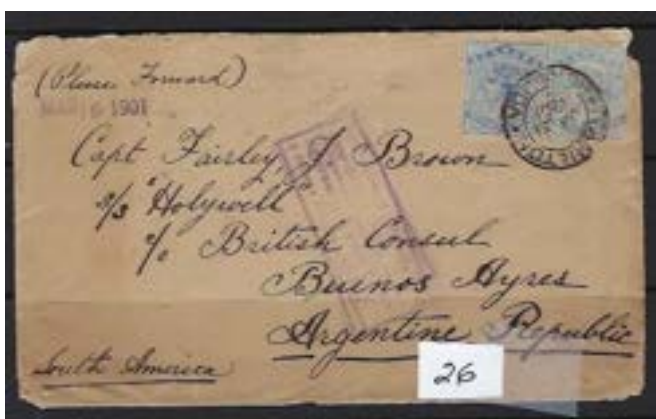 (Please Forward)
MAR 6 1901
Capt Fairley, J Brown
s/s "Holywell"
c/o British Consul
Buenos Ayres
Argentine Republic
South America
26